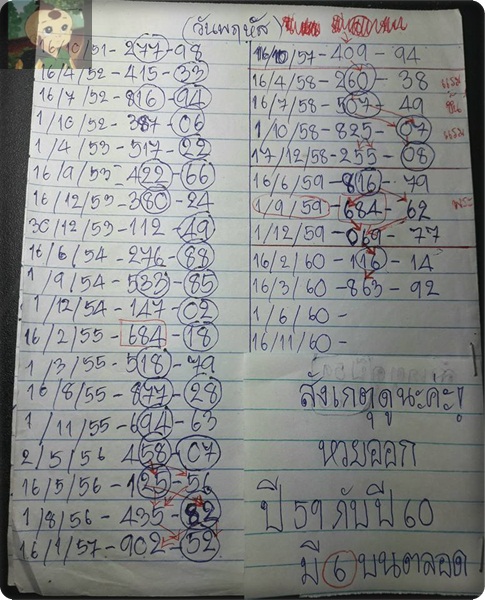 (วันพฤหัส)
16/10/51-277-98
16/4/52-415-33
16/7/52-816-94
1/10/52-387-06
1/4/53-517-22
16/9/53-422-66
16/12/53-380-24
30/12/53-112-49
16/6/54-276-88
1/9/54-533-85
1/12/54-147-02
16/2/55-684-18
1/3/55-518-79
16/8/55-877-28
1/11/55-694-63
2/5/56-458-07
16/5/56-125-56
1/8/56-435-82
16/1/57-902-52
16/10/57-409-94
16/4/58-260-38 แรม
16/7/58-507-49 ขึ้น
1/10/58-825-07 แรม
17/12/58-255-08
16/6/59-816-79
1/9/59-684-62 พระ
1/12/59-069-77
16/2/60-116-14
16/3/60-863-92
1/6/60-
16/11/60-
สังเกตุดูนะคะ
หวยออก
ปี 59 กับปี 60
มี 6 บนตลอด